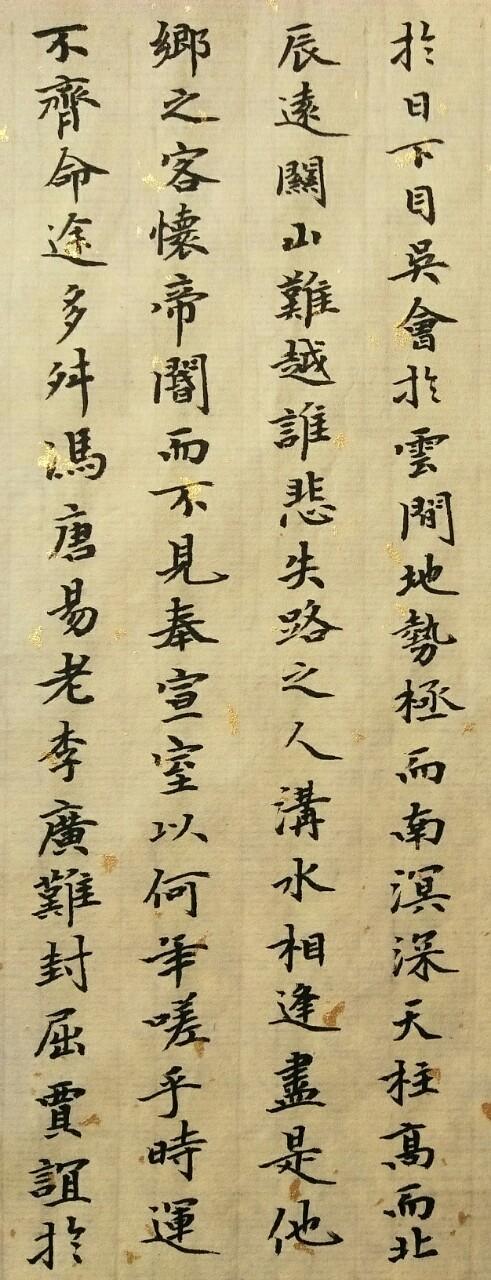 於日下目吳會於雲間地勢極而南溟深天柱高而北
辰遠關山難越誰悲失路之人溝水相逢盡是他
鄉之客懷帝閽而不見奉宣室以何年嗟乎時運
不齊命途多舛馮唐易老李廣難封屈賈誼於